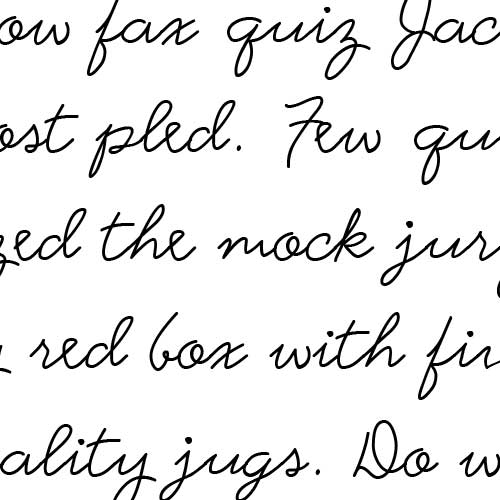 ow fax quiz Jac
ost pled. Few qu
zed the mock jur
y red box with fiv
ality jugs. Do w